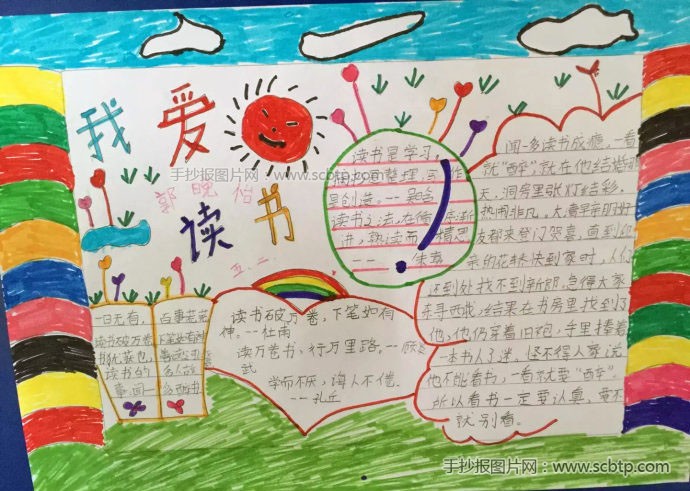 手抄报图片网 www.scbtp.com
我爱
读书
郭晚怡
五.二
读书是学习,
摘抄是整理,写作
是创造。--吴晗
读书之法,在循序渐
进,熟读而精思
-- 朱熹
闻一多读书成瘾,一看
就"醉",就在他结婚的
天,洞房里张灯结彩,
热闹非凡,大清早亲朋好
友都来登门贺喜,直到
亲的花轿快到家时,人们
还到处找不到新郎,急得大家
东寻西找,结果在书房里找到了
他,他仍穿着旧袍,手里捧着
一本书入了迷,怪不得人家说
他不能看书,一看就要"醉",
所以看书一定要认真,要不
就别看。
一日无书,
百事荒芜
读书破万卷
下笔如有神
书犹药也,
读书的
名人故
事:闻一
读书破万卷,下笔如有
神。--杜甫
读万卷书、行万里路。--
学而不厌,诲人不倦.
--孔丘
手抄报图片网:www.scbtp.com